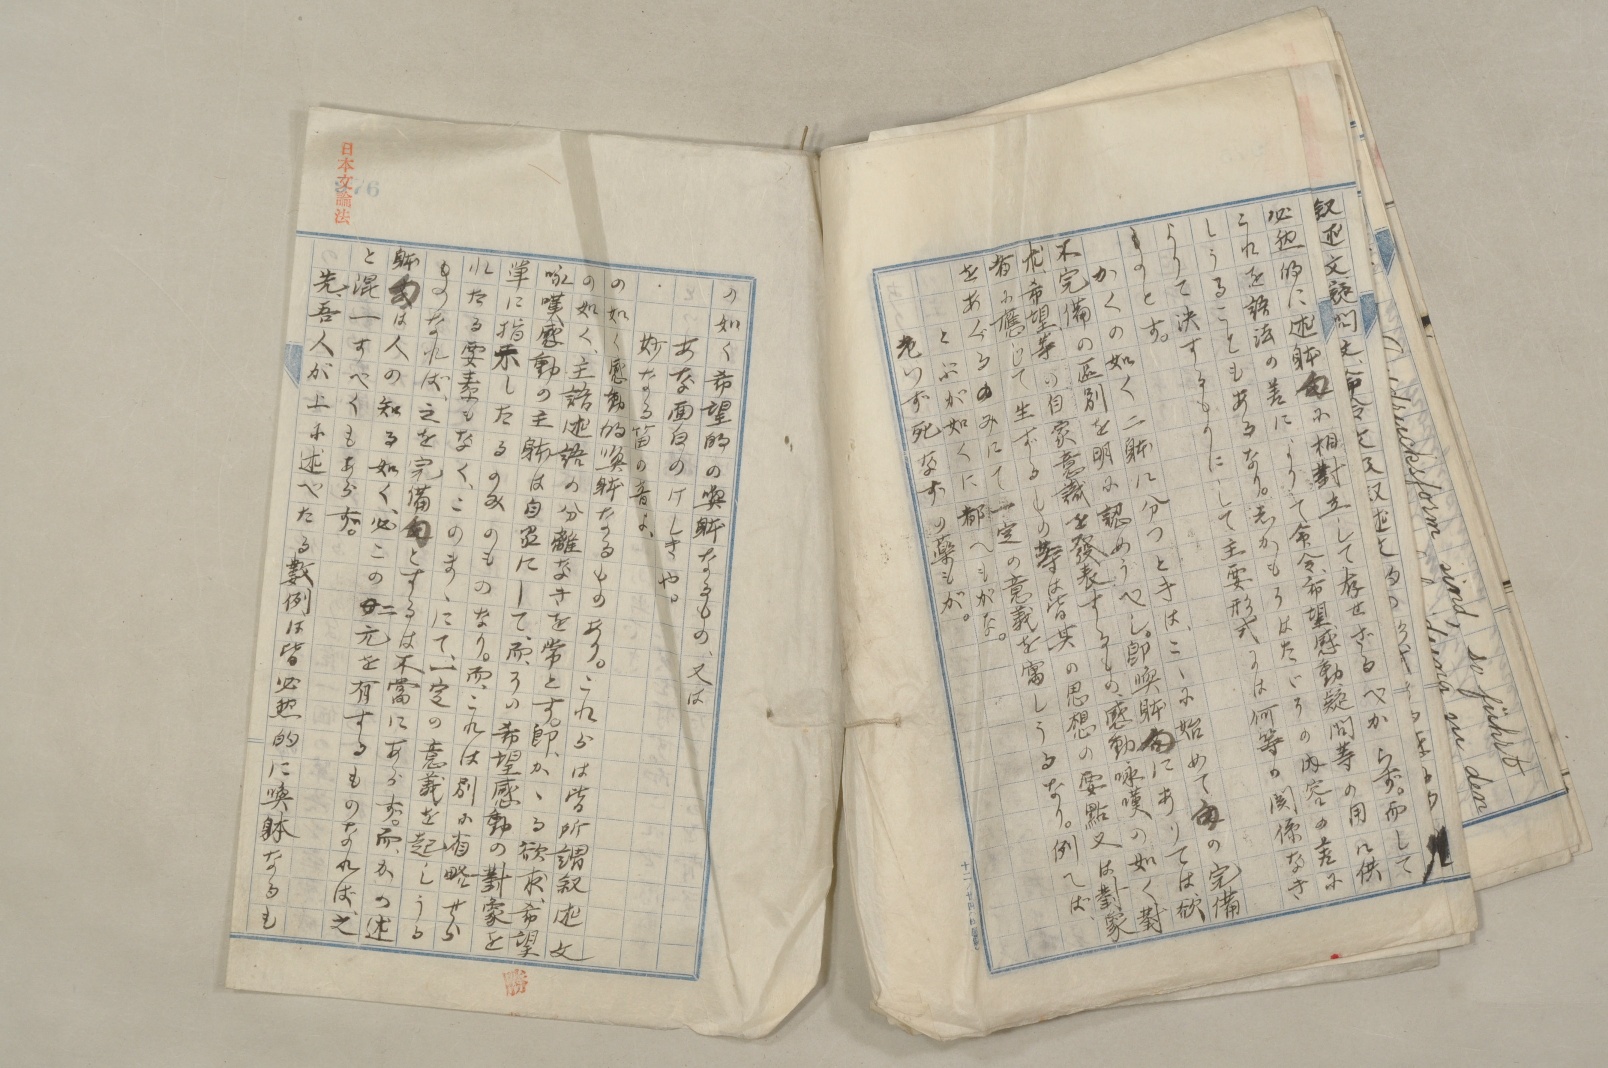 叙述文疑問文、命令文
必然的に述躰句に相對立して存せざるべからず。而して
これを語法の差によりて命令、希望感動疑問等の用に供
しうることもあるなり。しかもそはたゞその内容の差に
よりて決するものにして主要形式には何等の関係なき
ものとす。
かくの如く二躰に分つときは、こゝに始めて句の完備
不完備の區別を明に認めうべし。即喚躰句にありては、欲
求希望等の自家意識を發表するもの、感動咏嘆の如く對
者に應じて生ずるもの等は皆其の思想の要點又は對象
をあぐるのみにて一定の意義を寓しうるなり。例へば、
とぶが如くに都へもがな。
老いず死なずの薬もが。
十二ノ廿四
の如く希望的の喚躰なるもの、又は
あな面白のけしきや。
妙なる笛の音よ。
の如く感動的喚躰なるものあり。これらは皆所謂叙述文
の如く、主語述語の分離なきを常とす。即、かゝる欲求、希望
咏嘆感動の主躰は自家にして、而、その希望感動の對象を
單に指示したるのみのものなり。而、これは別に省略せら
れたる要素もなく、このまゝにて、一定の意義を起しうる
ものなれば、之を完備句とするは不當にあらず。而、かの述
躰句は人の知る如く、必この二元を有するものなれば、之
と混一すべくもあらず。
先、吾人が上に述べたる數例は皆必然的に喚躰なるも
日本文論法
勝
Ausdrucksform sind, so führt